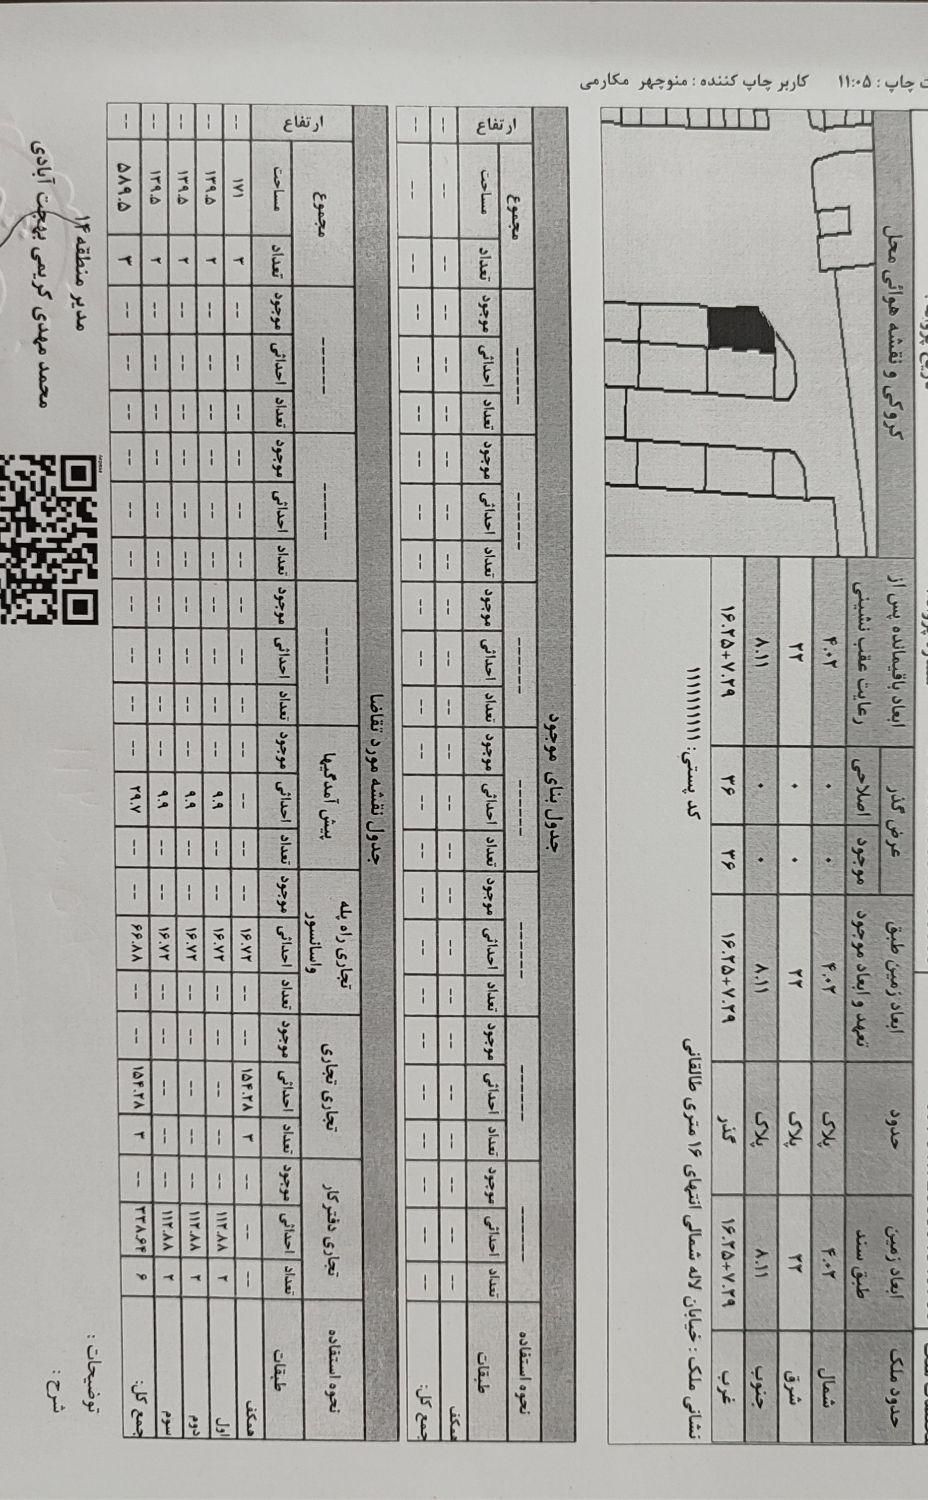 ت چاپ : ۱۱:۰۵ کاربر چاپ کننده : منوچهر مکارمی
حدود ملک | ابعاد زمین طبق سند | حدود | ابعاد زمین طبق تعهد و ابعاد موجود | عرض گذر | ابعاد باقیمانده پس از رعایت عقب نشینی | کروکی و نقشه هوائی محل
موجود | اصلاحی
شمال | ۴.۰۲ | پلاک | ۴.۰۲ | ۰ | ۰ | ۴.۰۲
شرق | ۲۲ | پلاک | ۲۲ | ۰ | ۰ | ۲۲
جنوب | ۸.۱۱ | پلاک | ۸.۱۱ | ۰ | ۰ | ۸.۱۱
غرب | ۱۶.۲۵+۷.۲۹ | گذر | ۱۶.۲۵+۷.۲۹ | ۳۶ | ۳۶ | ۱۶.۲۵+۷.۲۹
نشانی ملک : خیابان لاله شمالی انتهای ۱۶ متری طالقانی کد پستی: ۱۱۱۱۱۱۱۱۱۱
جدول بنای موجود
نحوه استفاده | ------ | ------ | ------ | ------ | ------ | ------ | مجموع | ارتفاع
طبقات | تعداد | احداثی | موجود | تعداد | احداثی | موجود | تعداد | احداثی | موجود | تعداد | احداثی | موجود | تعداد | احداثی | موجود | تعداد | احداثی | موجود | تعداد | احداثی | موجود | تعداد | مساحت
همکف | -- | -- | -- | -- | -- | -- | -- | -- | -- | -- | -- | -- | -- | -- | -- | -- | -- | -- | -- | -- | -- | -- | -- | --
جمع کل: | -- | -- | -- | -- | -- | -- | -- | -- | -- | -- | -- | -- | -- | -- | -- | -- | -- | -- | -- | -- | -- | -- | --- | --
جدول نقشه مورد تقاضا
نحوه استفاده | تجاری دفترکار | تجاری تجاری | تجاری راه پله واسانسور | پیش آمدگیها | ------ | ------ | ------ | مجموع | ارتفاع
طبقات | تعداد | احداثی | موجود | تعداد | احداثی | موجود | تعداد | احداثی | موجود | تعداد | احداثی | موجود | تعداد | احداثی | موجود | تعداد | احداثی | موجود | تعداد | احداثی | موجود | تعداد | مساحت
همکف | -- | -- | -- | ۳ | ۱۵۴.۲۸ | -- | -- | ۱۶.۷۲ | -- | -- | -- | -- | -- | -- | -- | -- | -- | -- | -- | -- | -- | ۳ | ۱۷۱ | --
اول | ۲ | ۱۱۲.۸۸ | -- | -- | -- | -- | -- | ۱۶.۷۲ | -- | -- | ۹.۹ | -- | -- | -- | -- | -- | -- | -- | -- | -- | -- | ۲ | ۱۳۹.۵ | --
دوم | ۲ | ۱۱۲.۸۸ | -- | -- | -- | -- | -- | ۱۶.۷۲ | -- | -- | ۹.۹ | -- | -- | -- | -- | -- | -- | -- | -- | -- | -- | ۲ | ۱۳۹.۵ | --
سوم | ۲ | ۱۱۲.۸۸ | -- | -- | -- | -- | -- | ۱۶.۷۲ | -- | -- | ۹.۹ | -- | -- | -- | -- | -- | -- | -- | -- | -- | -- | ۲ | ۱۳۹.۵ | --
جمع کل: | ۶ | ۳۳۸.۶۴ | -- | ۳ | ۱۵۴.۲۸ | -- | -- | ۶۶.۸۸ | -- | -- | ۲۹.۷ | -- | -- | -- | -- | -- | -- | -- | -- | -- | -- | ۳ | ۵۸۹.۵ | --
توضیحات :
شرح :
مدیر منطقه ۱۴
محمد مهدی کریمی بهجت آبادی